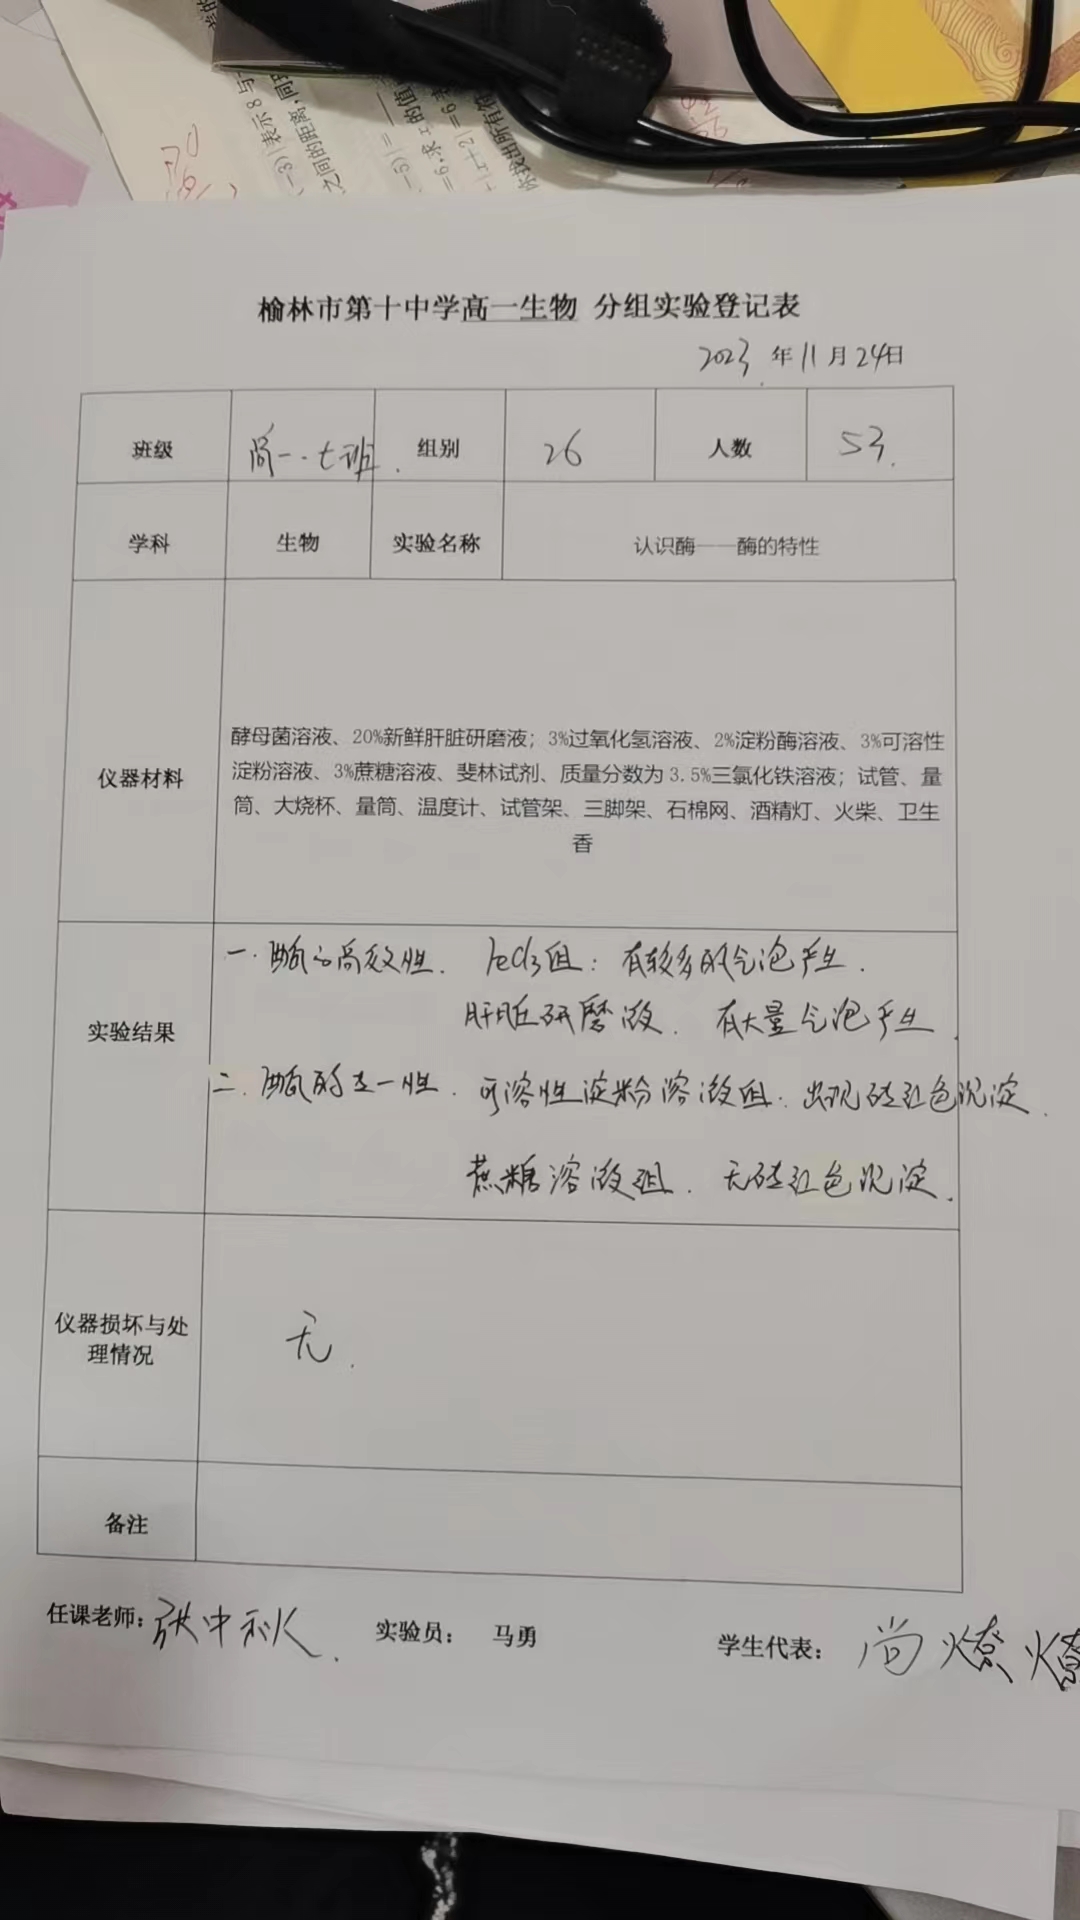 (-3)|表示8与
之间的距离,同
(-5)|=
=6,求x的值
-1x+2|=6
你找出所有符
榆林市第十中学高一生物 分组实验登记表
2023 年 11 月 24日
班级 高一.七班. 组别 26 人数 53.
学科 生物 实验名称 认识酶——酶的特性
仪器材料
酵母菌溶液、20%新鲜肝脏研磨液；3%过氧化氢溶液、2%淀粉酶溶液、3%可溶性
淀粉溶液、3%蔗糖溶液、斐林试剂、质量分数为3.5%三氯化铁溶液；试管、量
筒、大烧杯、量筒、温度计、试管架、三脚架、石棉网、酒精灯、火柴、卫生
香
实验结果
一.酶的高效性. FeCl3组：有较多的气泡产生.
肝脏研磨液. 有大量气泡产生.
二.酶的专一性. 可溶性淀粉溶液组：出现砖红色沉淀.
蔗糖溶液组. 无砖红色沉淀.
仪器损坏与处
理情况
无.
备注
任课老师：张中秋. 实验员： 马勇 学生代表： 尚燎燎